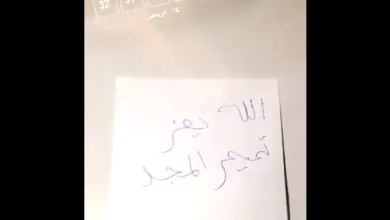 32°
31°
الرياض
الله يعز
تميم المجد